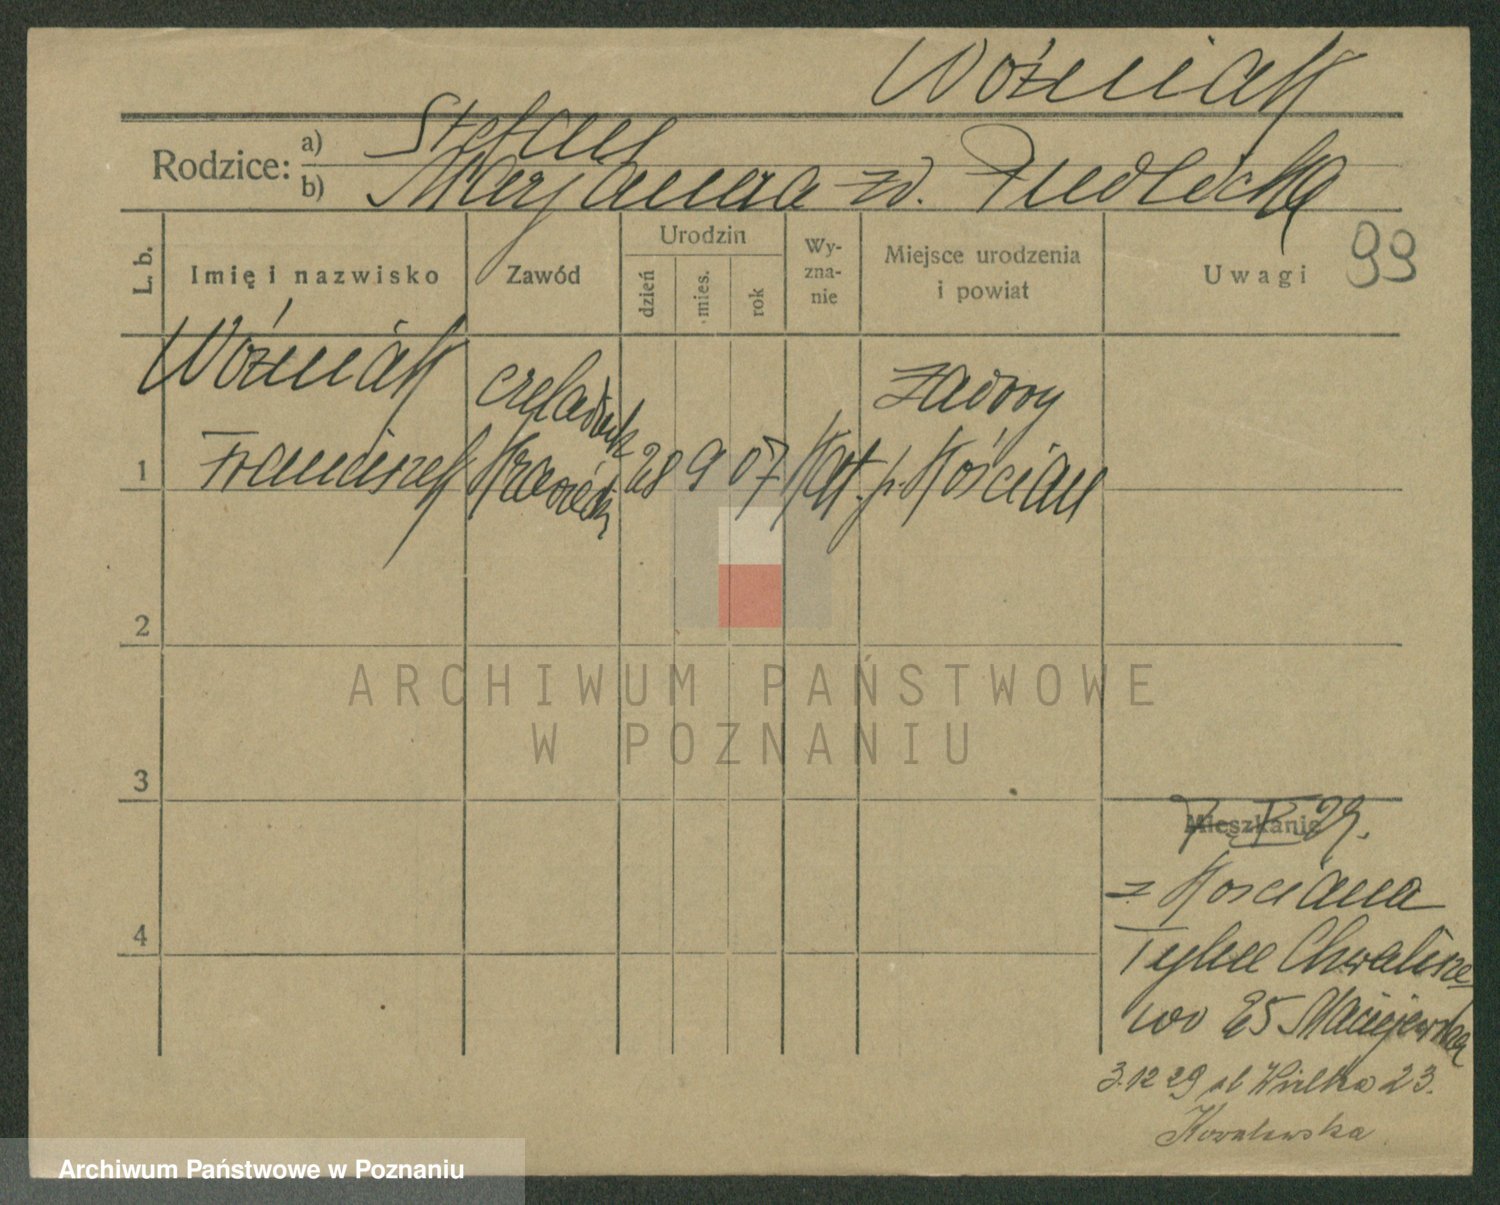 Woźniak
Rodzice: a) Stefan
b) Marjanna zd. Siedlecka
99
L. b. Imię i nazwisko Zawód Urodzin dzień mies. rok Wyznanie Miejsce urodzenia i powiat Uwagi
Woźniak czeladnik Zadory
1 Franciszek Krawiecki 28 9 07 Kat. p. Kościan
2
ARCHIWUM PAŃSTWOWE
W POZNANIU
3
Mieszkanie
29.
z Kościana
4
Chwalisze-
wo 25 Maciejewska
3.12 29 ul Wielka 23.
Kowalewska
Archiwum Państwowe w Poznaniu